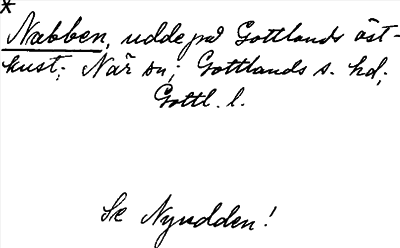 *
Nabben, udde på Gottlands öst-
kust; När sn; Gottlands s. hd;
Gottl. l.
Se Nyudden!